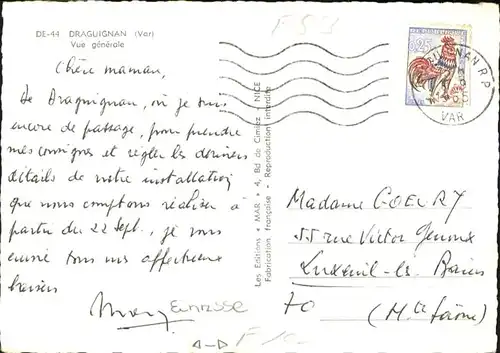 DE-44 DRAGUIGNAN (Var)
Vue générale
Chère maman,
De Draguignan, où je suis
encore de passage, pour prendre
mes consignes et régler les derniers
détails de notre installation
que nous comptons réaliser à
partir du 22 Sept., je vous
envoie tous mes affectueux
baisers
Les Editions "MAR" 4, Bd de Cimiez - NICE
Fabrication française - Reproduction interdite
0,25
R.P.
VAR
Madame GOEURY
55 rue Victor Genoux
Luxeuil-les Bains
70 (Hte Saône)